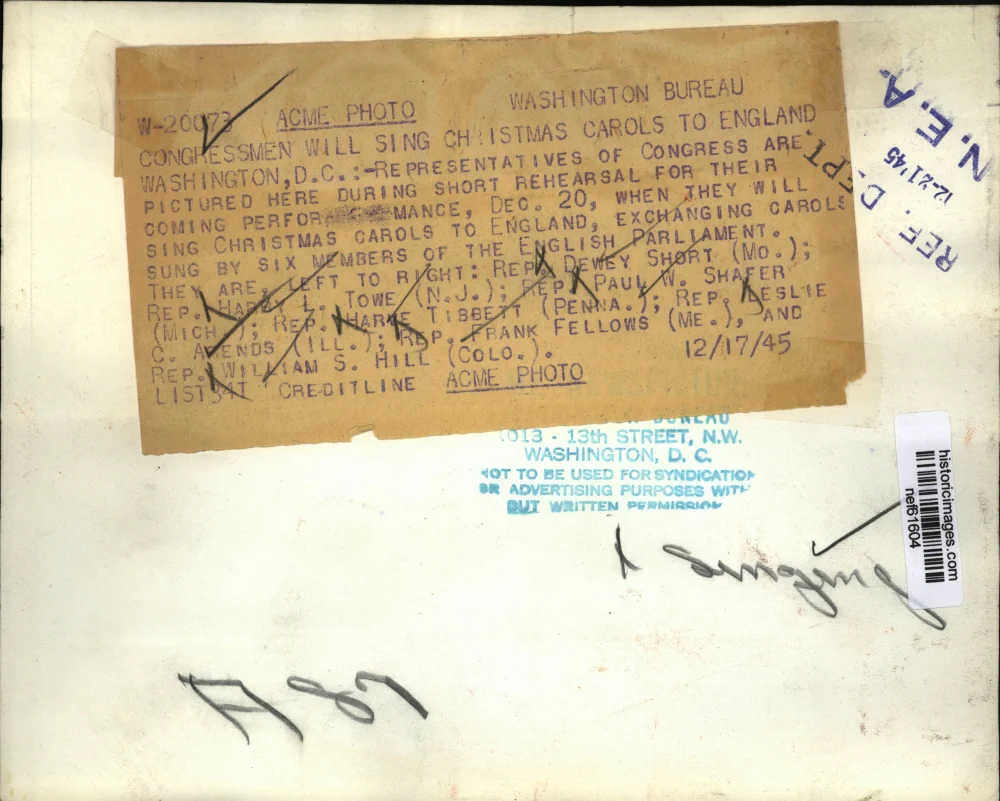 W-20073 ACME PHOTO WASHINGTON BUREAU
CONGRESSMEN WILL SING CHRISTMAS CAROLS TO ENGLAND
WASHINGTON, D.C.:-REPRESENTATIVES OF CONGRESS ARE
PICTURED HERE DURING SHORT REHEARSAL FOR THEIR
COMING PERFOR MANCE, DEC. 20, WHEN THEY WILL
SING CHRISTMAS CAROLS TO ENGLAND, EXCHANGING CAROLS
SUNG BY SIX MEMBERS OF THE ENGLISH PARLIAMENT.
THEY ARE, LEFT TO RIGHT: REP. DEWEY SHORT (MO.);
REP. HARRY L. TOWE (N.J.); REP. PAUL W. SHAFER
(MICH.); REP. HARVE TIBBETT (PENNA.); REP. LESLIE
C. ARENDS (ILL.); REP. FRANK FELLOWS (ME.), AND
REP. WILLIAM S. HILL (COLO.).
LIST CREDITLINE ACME PHOTO 12/17/45
N.E.A.
12-21'45
REF. DEPT
BUREAU
1013 - 13th STREET, N.W.
WASHINGTON, D. C.
NOT TO BE USED FOR SYNDICATION
OR ADVERTISING PURPOSES WITH
OUT WRITTEN PERMISSION
historicimages.com
nef61604
Singing